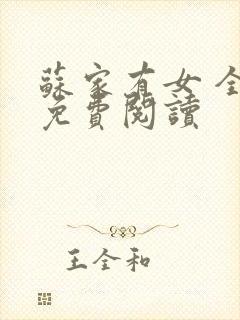 蘇家有女全
免費閱讀
王全和